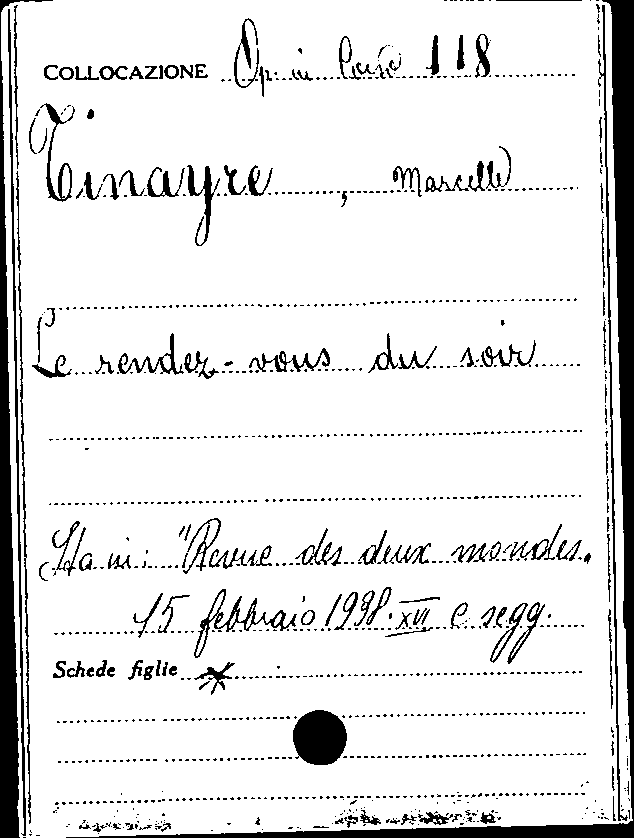 COLLOCAZIONE Op. in Corso 118
Tinayre, Marcelle
Le rendez-vous du soir
Sta in: "Revue des deux mondes.
15 febbraio 1938. XVI e segg.
Schede figlie